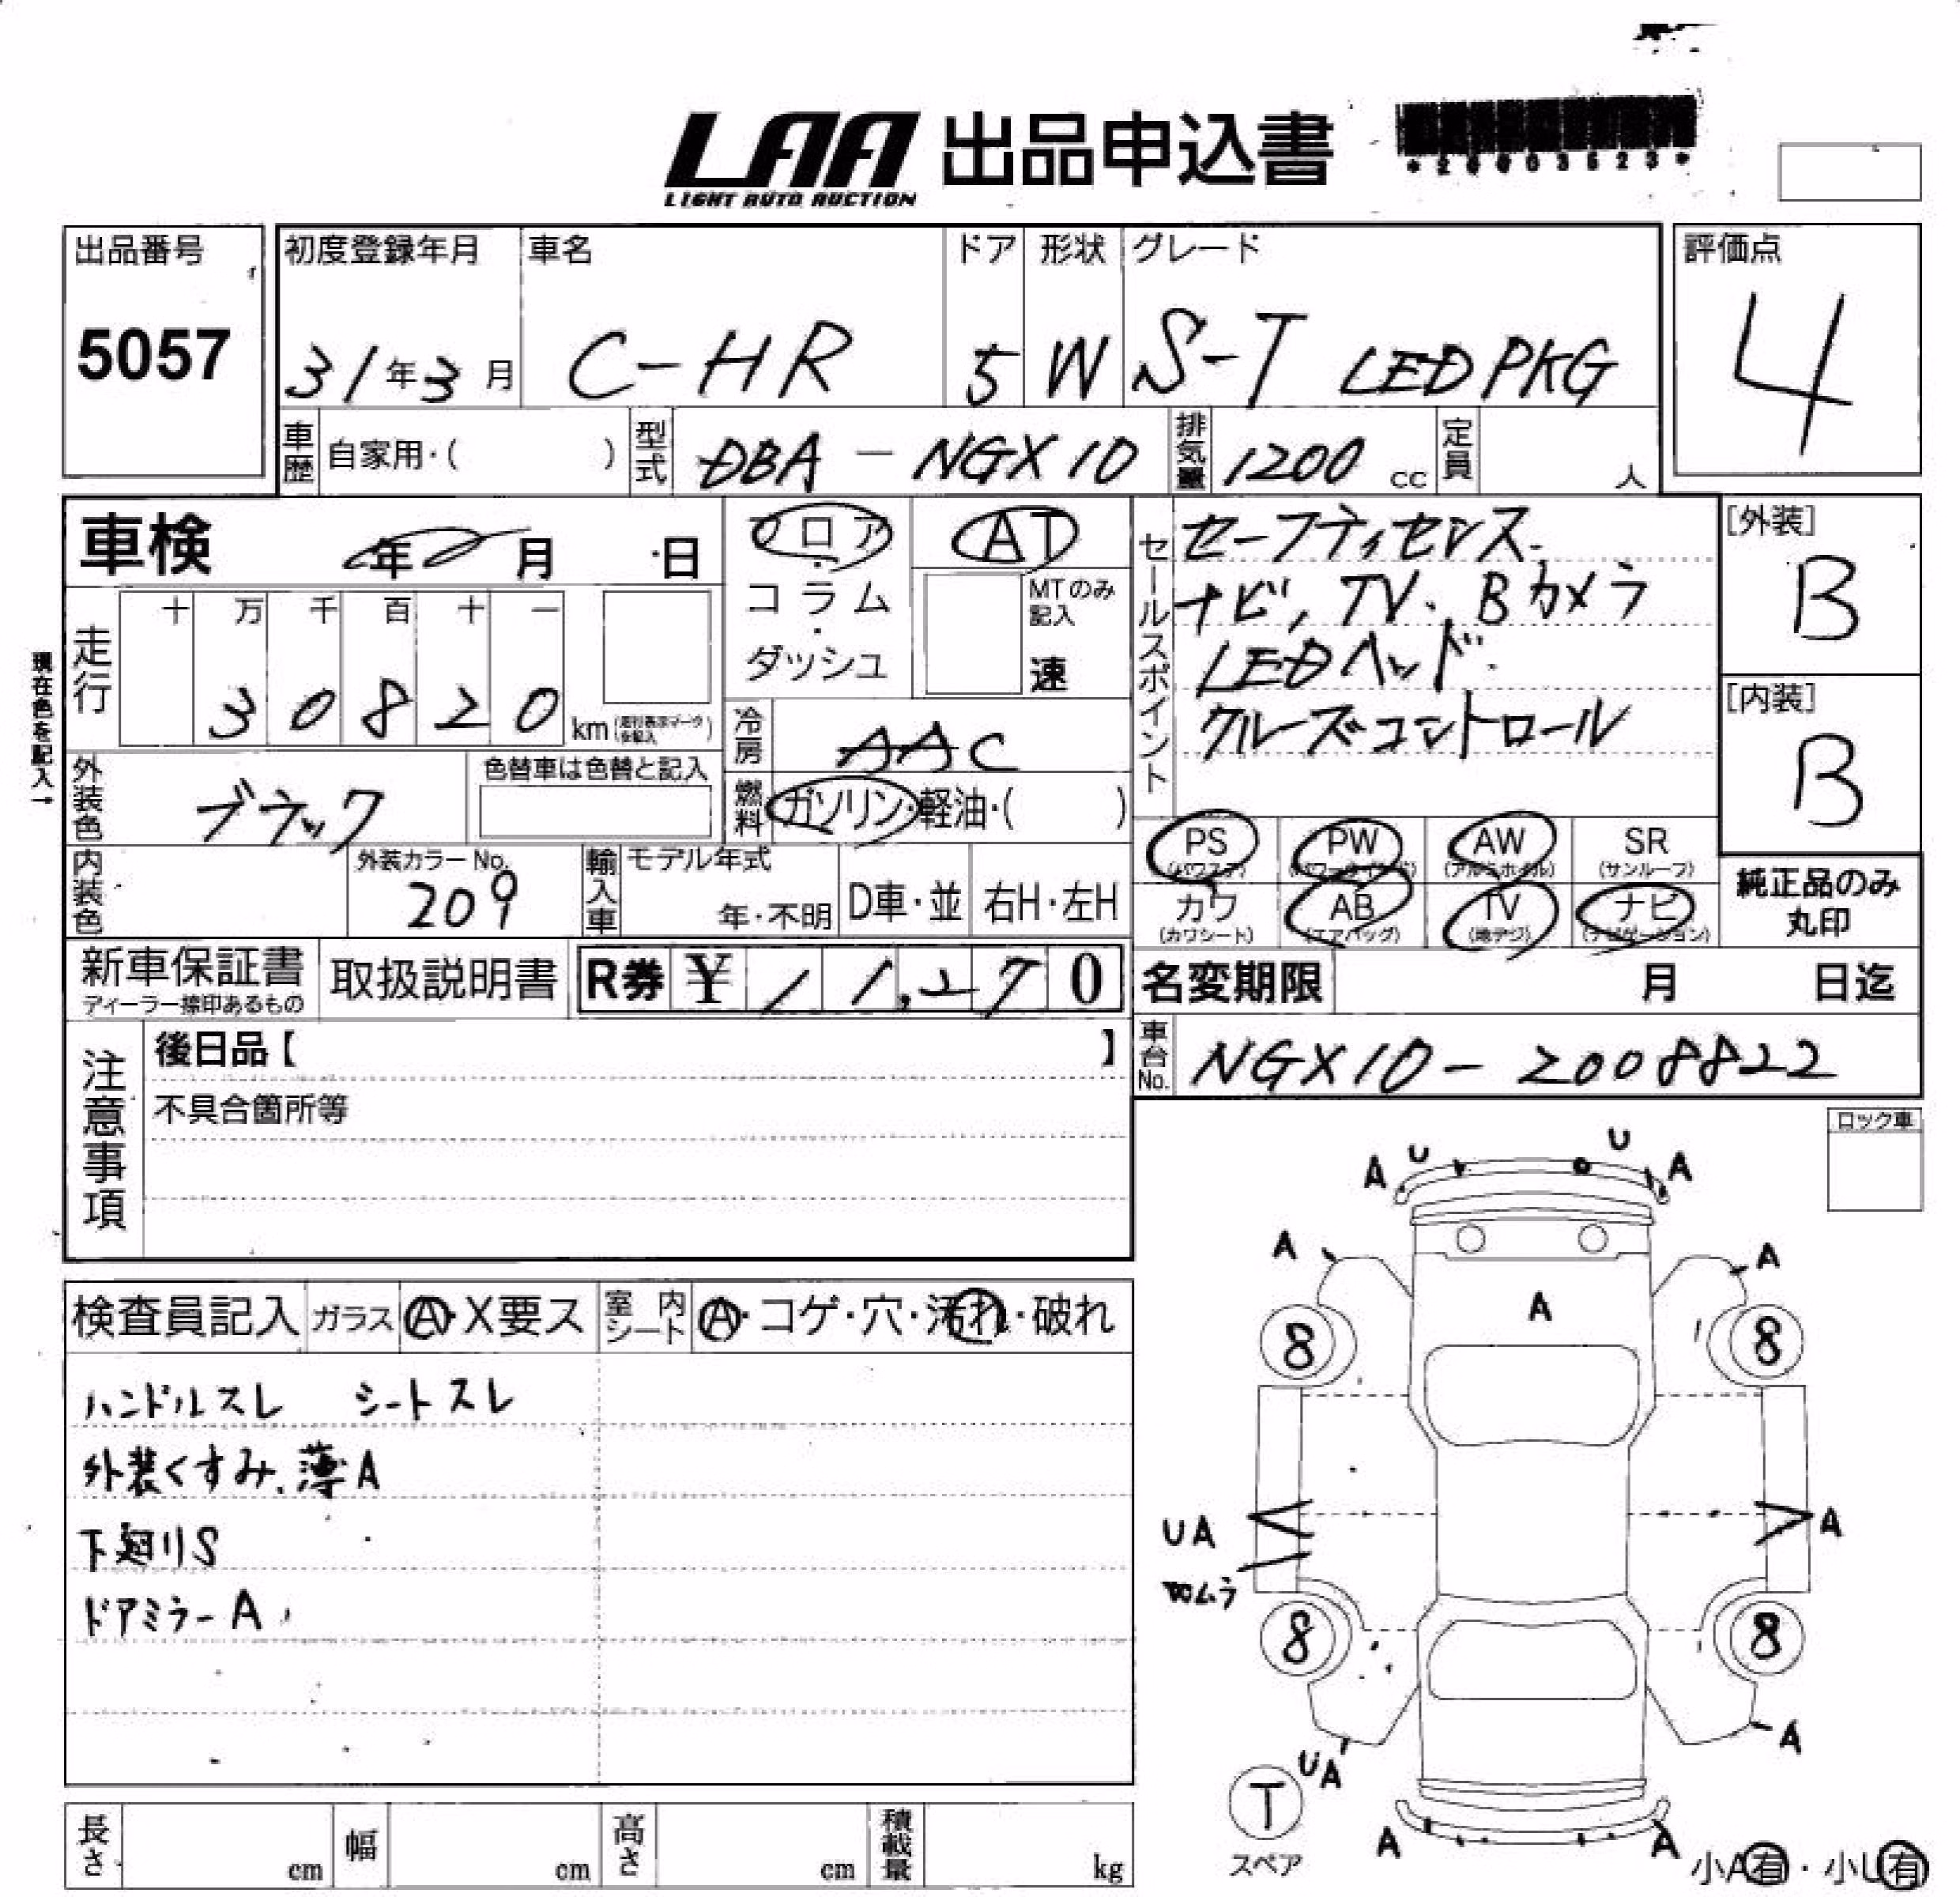 LAA 出品申込書
LIGHT AUTO AUCTION
出品番号
5057
初度登録年月
31年3月
車名
C-HR
ドア
5
形状
W
グレード
S-T LED PKG
評価点
4
車歴 自家用・( )
型式 DBA-NGX10
排気量 1200 cc
定員 人
車検 年 月 日
フロア・コラム・ダッシュ
AT
MTのみ記入
速
セールスポイント
セーフティセンス.
ナビ, TV. Bカメラ
LEDヘッド.
クルーズコントロール
[外装]
B
[内装]
B
現在色を記入→
走行
十 万 千 百 十 一
3 0 8 2 0 km
冷房 AAC
燃料 ガソリン・軽油・( )
外装色 ブラック
色替車は色替と記入
内装色
外装カラー No.
209
輸入車
モデル年式
年・不明
D車・並
右H・左H
PS (パワステ)
PW (パワーウインド)
AW (アルミホイル)
SR (サンルーフ)
カワ (カワシート)
AB (エアバッグ)
TV (地デジ)
ナビ (ナビゲーション)
純正品のみ
丸印
新車保証書
ディーラー捺印あるもの
取扱説明書
R券 ¥ 11,270
名変期限 月 日迄
車台No. NGX10-2008822
注意事項
後日品【 】
不具合箇所等
ロック車
検査員記入
ガラス A・X要ス
室内シート A・コゲ・穴・汚れ・破れ
ハンドルスレ シートスレ
外装くすみ.薄A
下廻りS
ドアミラーA
A U U A
A A
A
8 8
UA A
ムラ
8 8
UA A
T
スペア
A A
小A有・小U有
長さ cm
幅 cm
高さ cm
積載量 kg